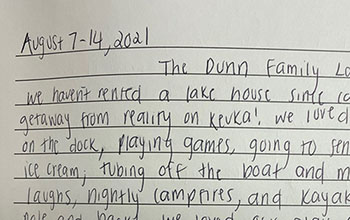 August 7-14, 2021
The Dunn Family
we haven't rented a lake house since
getaway from reality on Keuka! we loved
on the dock, playing games, going to
ice cream, tubing off the boat and
laughs, nightly campfires, and kayak